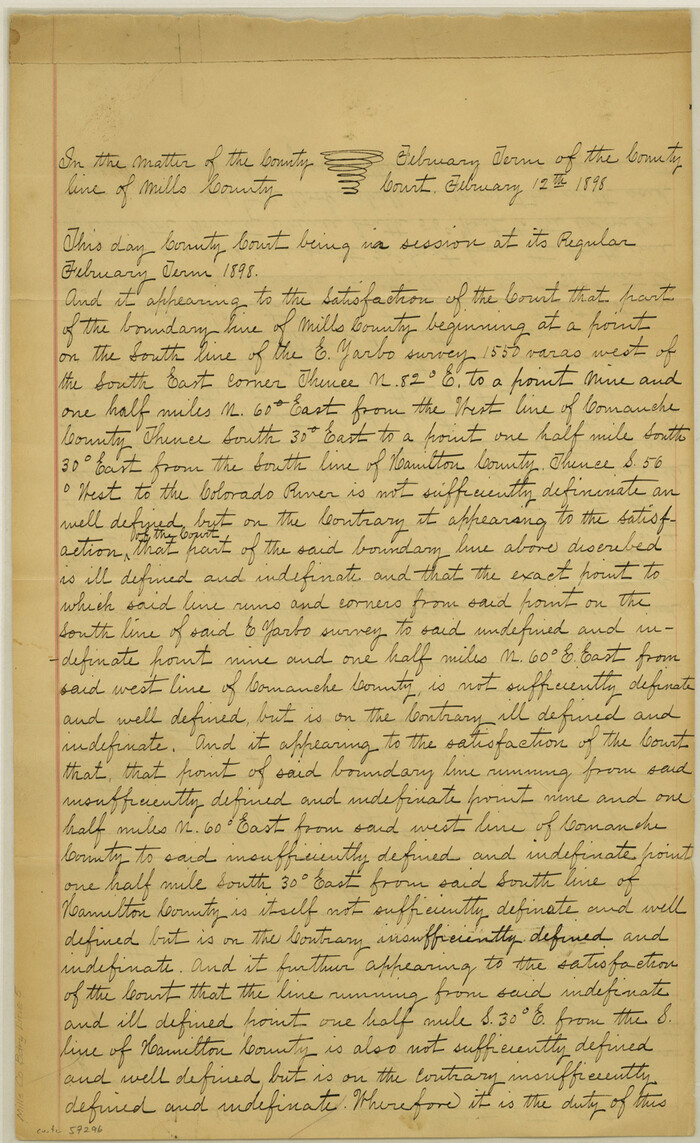 In the matter of the County
line of Mills County
February Term of the County
Court, February 12th 1898
This day County Court being in session at its Regular
February Term 1898.
And it appearing to the satisfaction of the Court that part
of the boundary line of Mills County beginning at a point
on the South line of the E. Yarbo survey 1550 varas west of
the South East corner Thence N. 82° E. to a point Nine and
one half miles N. 60° East from the West line of Comanche
County Thence South 30° East to a point one half mile South
30° East from the South line of Hamilton County. Thence S. 56
° West to the Colorado River is not sufficiently defininate an
well defined, but on the Contrary it appearing to the satisf-
action of the Court, that part of the said boundary line above discrebed
is ill defined and indefinate and that the exact point to
which said line runs and corners from said point on the
South line of said E Yarbo survey to said undefined and in-
-definate point nine and one half miles N. 60° E. East from
said west line of Comanche County, is not sufficiently definate
and well defined, but is on the Contrary ill defined and
indefinate. And it appearing to the satisfaction of the Court
that, that point of said boundary line running from said
insufficiently defined and indefinate point nine and one
half miles N. 60° East from said west line of Comanche
County to said insufficiently defined and indefinate point
one half mile South 30° East from said South line of
Hamilton County is itself not sufficiently definate and well
defined but is on the Contrary insufficiently defined and
indefinate. And it further appearing to the satisfaction
of the Court that the line running from said indefinate
and ill defined point one half mile S. 30° E. from the S.
line of Hamilton County is also not sufficiently defined
and well defined, but is on the contrary insufficiently
defined and indefinate. Wherefore it is the duty of this
Mills Bdry File 5
57296